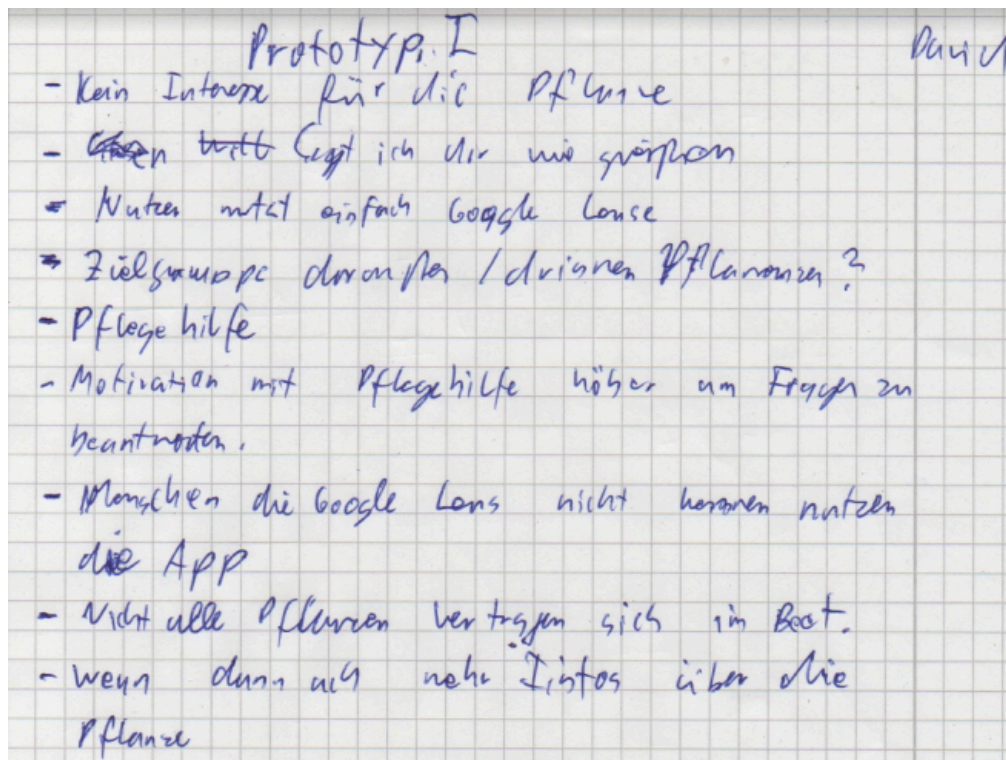 Prototyp I David
- Kein Interesse für die Pflanze
- ich dir nie
- Nutzer nutzt einfach Google Lense
- Zielgruppe / drinnen Pflanzen?
- Pflegehilfe
- Motivation mit Pflegehilfe höher um Fragen zu
beantworten.
- Menschen die Google Lens nicht kennen nutzen
die App
- Nicht alle Pflanzen vertragen sich im Beet.
- wenn dann mehr Infos über die
Pflanze